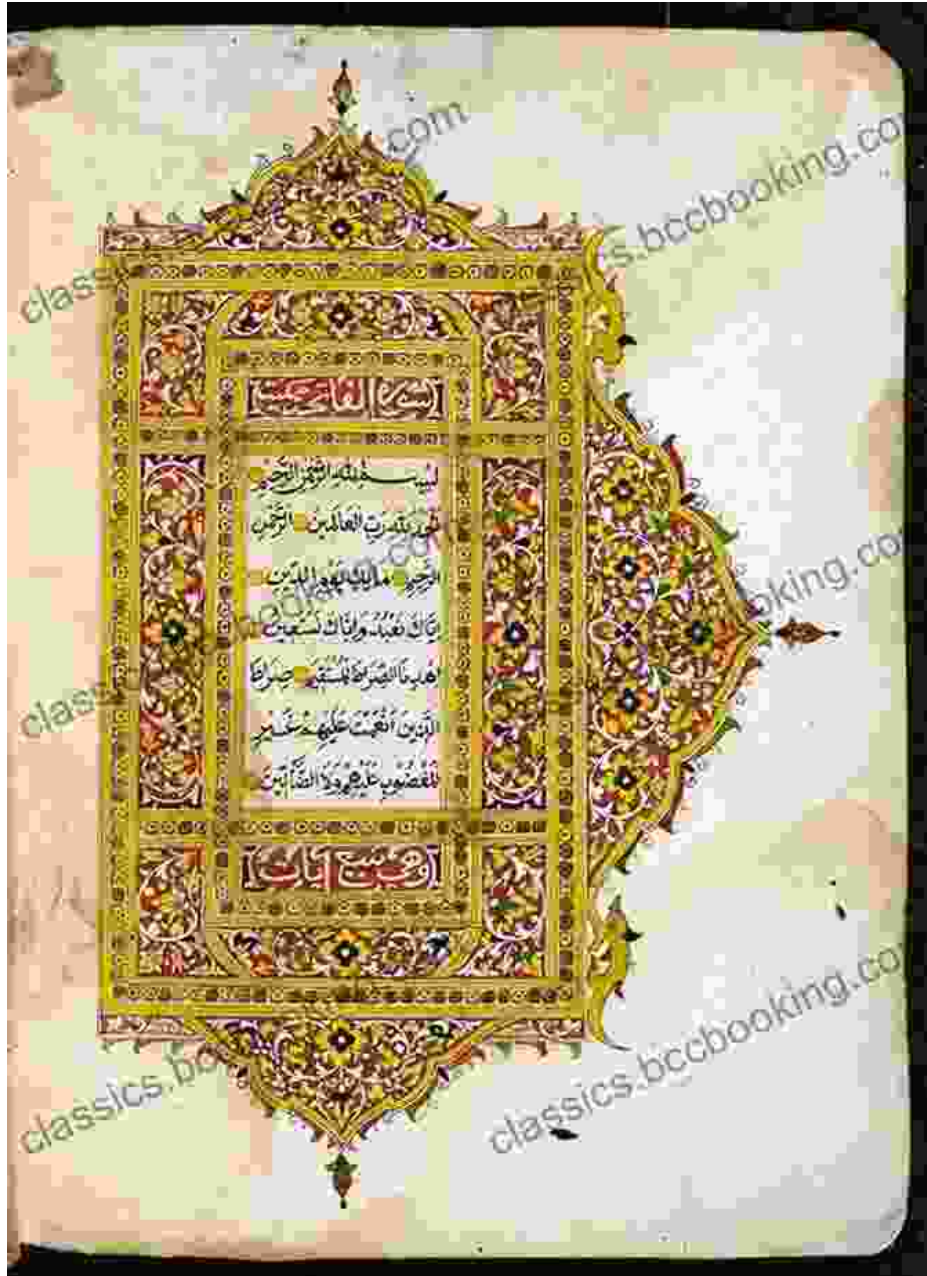 السورة الفاتحة
بسم الله الرحمن الرحيم
الحمد لله رب العالمين الرحمن
الرحيم مالك يوم الدين
اياك نعبد واياك نستعين
اهدنا الصراط المستقيم صراط
الذين انعمت عليهم غير
المغضوب عليهم ولا الضالين
وهي سبع آيات
classics.bccbooking.com